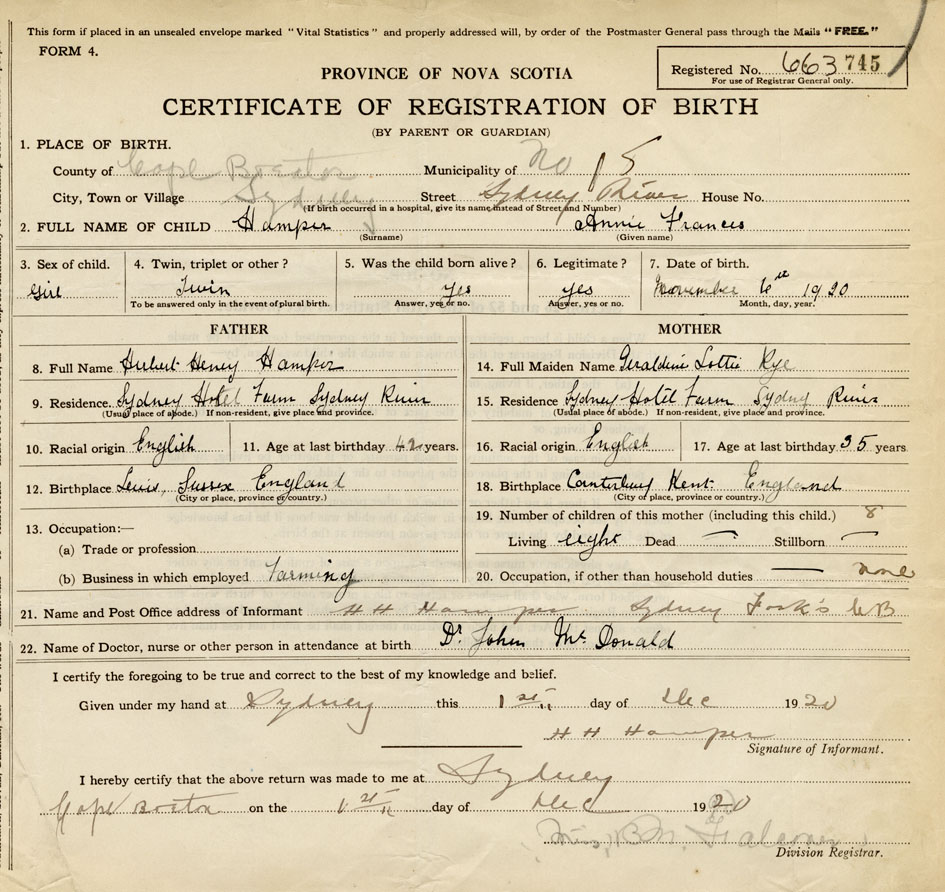 This form if placed in an unsealed envelope marked "Vital Statistics" and properly addressed will, by order of the Postmaster General pass through the Mails "FREE."
FORM 4.
Registered No. 663 745
For use of Registrar General only.
PROVINCE OF NOVA SCOTIA
CERTIFICATE OF REGISTRATION OF BIRTH
(BY PARENT OR GUARDIAN)
1. PLACE OF BIRTH.
County of Cape Breton Municipality of No 15
City, Town or Village Sydney Street Sydney River House No.
(If birth occurred in a hospital, give its name instead of Street and Number)
2. FULL NAME OF CHILD Hamper Annie Frances
(Surname) (Given name)
3. Sex of child. 4. Twin, triplet or other? 5. Was the child born alive? 6. Legitimate? 7. Date of birth.
Girl Twin Yes yes November 6th 1920
To be answered only in the event of plural birth. Answer, yes or no. Answer, yes or no. Month, day, year.
FATHER
8. Full Name Hubert Henry Hamper
9. Residence. Sydney Hotel Farm Sydney River
(Usual place of abode.) If non-resident, give place and province.
10. Racial origin English 11. Age at last birthday 42 years.
12. Birthplace Lewis, Sussex England
(City or place, province or country.)
13. Occupation:—
(a) Trade or profession
(b) Business in which employed farming
MOTHER
14. Full Maiden Name Geraldine Lottie Rye
15. Residence Sydney Hotel Farm Sydney River
(Usual place of abode.) If non-resident, give place and province.
16. Racial origin English 17. Age at last birthday 35 years
18. Birthplace Canterbury Kent England
(City or place, province or country.)
19. Number of children of this mother (including this child.) 8
Living eight Dead — Stillborn —
20. Occupation, if other than household duties — none
21. Name and Post Office address of Informant H H Hamper Sydney Fork's CB
22. Name of Doctor, nurse or other person in attendance at birth Dr. John McDonald
I certify the foregoing to be true and correct to the best of my knowledge and belief.
Given under my hand at Sydney this 1st day of Dec 1920
H H Hamper
Signature of Informant.
I hereby certify that the above return was made to me at Sydney
Cape Breton on the 1st day of Dec 1920
B. M.
Division Registrar.